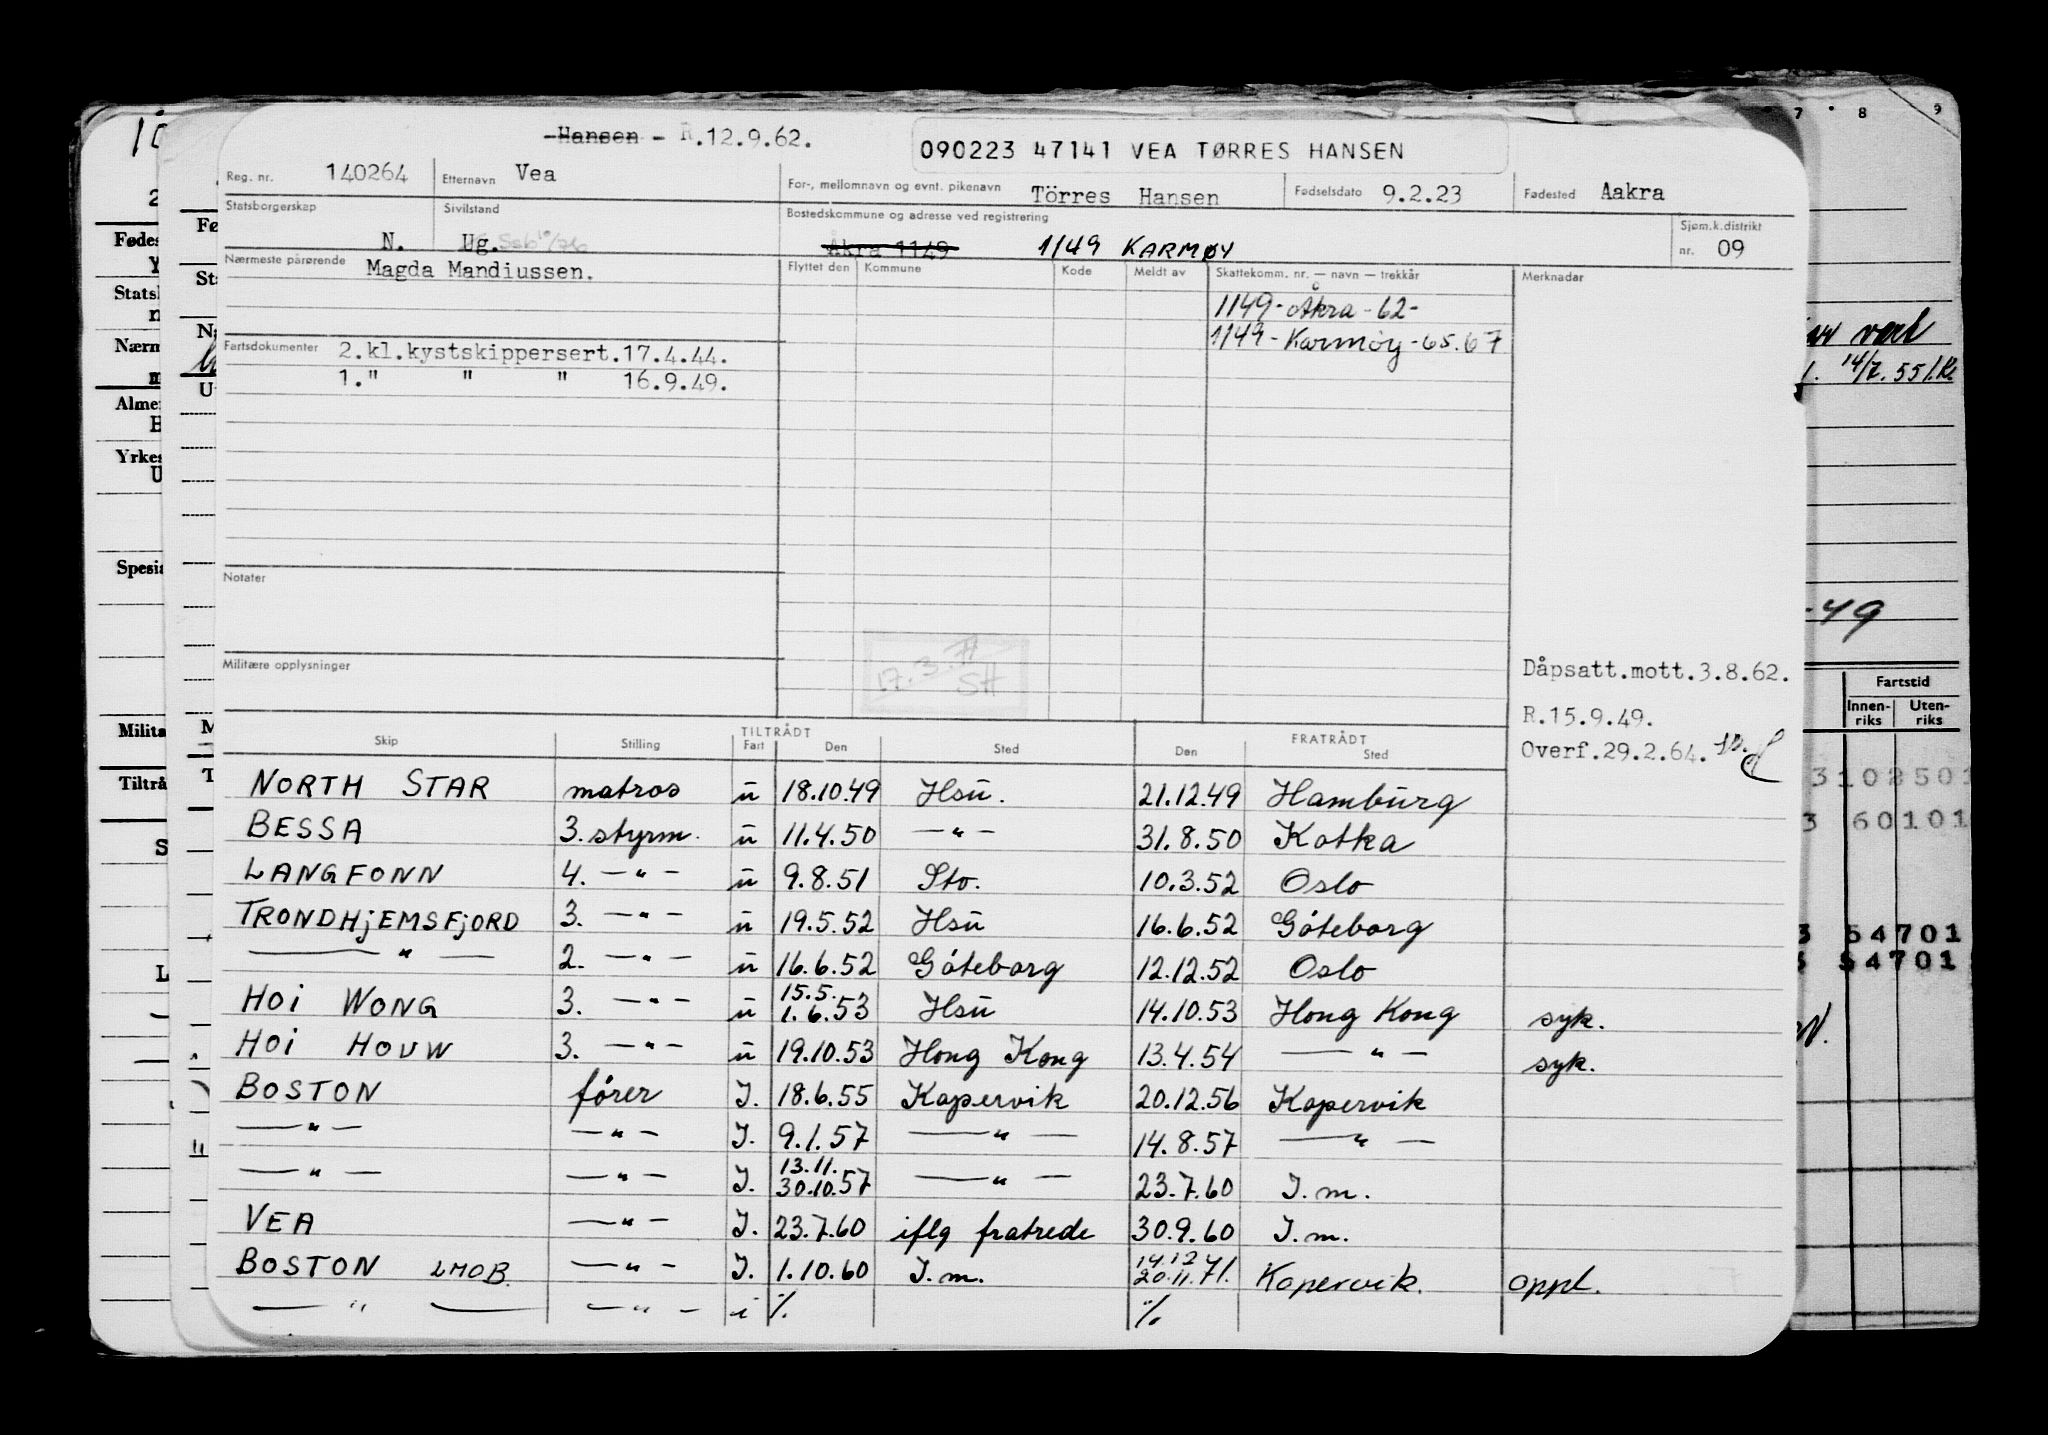 Hansen - R.12.9.62.
090223 47141 VEA TØRRES HANSEN
Reg. nr. 140264 Etternavn Vea For-, mellomnavn og evnt. pikenavn Törres Hansen Fødselsdato 9.2.23 Fødested Aakra
Statsborgerskap N. Sivilstand Ug. Bostedskommune og adresse ved registrering Åkra 1149 1149 KARMØY Sjøm.k.distrikt nr. 09
Nærmeste pårørende Magda Mandiussen. Flyttet den Kommune Kode Meldt av Skattekomm. nr. — navn — trekkår Merknader
1149-Åkra-62-
1149-Karmøy-65.67
Fartsdokumenter 2.kl.kystskippersert.17.4.44.
1." " " 16.9.49.
Notater
17.3.77
SH
Militære opplysninger
Dåpsatt.mott.3.8.62.
R.15.9.49.
Overf.29.2.64.
TILTRÅDT FRATRÅDT
Skip Stilling Fart Den Sted Den Sted
NORTH STAR matros u 18.10.49 Hsu. 21.12.49 Hamburg
BESSA 3. styrm. u 11.4.50 —"— 31.8.50 Kotka
LANGFONN 4. —"— u 9.8.51 Sto. 10.3.52 Oslo
TRONDHjEMSFjORD 3. —"— u 19.5.52 Hsu 16.6.52 Göteborg
—"— 2. —"— u 16.6.52 Göteborg 12.12.52 Oslo
HOI WONG 3. —"— u 15.5. 1.6.53 Hsu 14.10.53 Hong Kong syk.
HOI HOUW 3. —"— u 19.10.53 Hong Kong 13.4.54 —"— syk.
BOSTON fører I. 18.6.55 Kopervik 20.12.56 Kopervik
—"— —"— I. 9.1.57 —"— 14.8.57 —"—
—"— —"— I. 13.11. 30.10.57 —"— 23.7.60 I.m.
VEA —"— I. 23.7.60 iflg fratrede 30.9.60 I.m.
BOSTON LMOB. —"— I. 1.10.60 I.m. 14.12 20.11.71. Kopervik. oppl.
—"— —"— i % %
7 8 9
14/7.55
-49
Fartstid
Innen-riks Uten-riks
3102501
3 60101
3 54701
54701